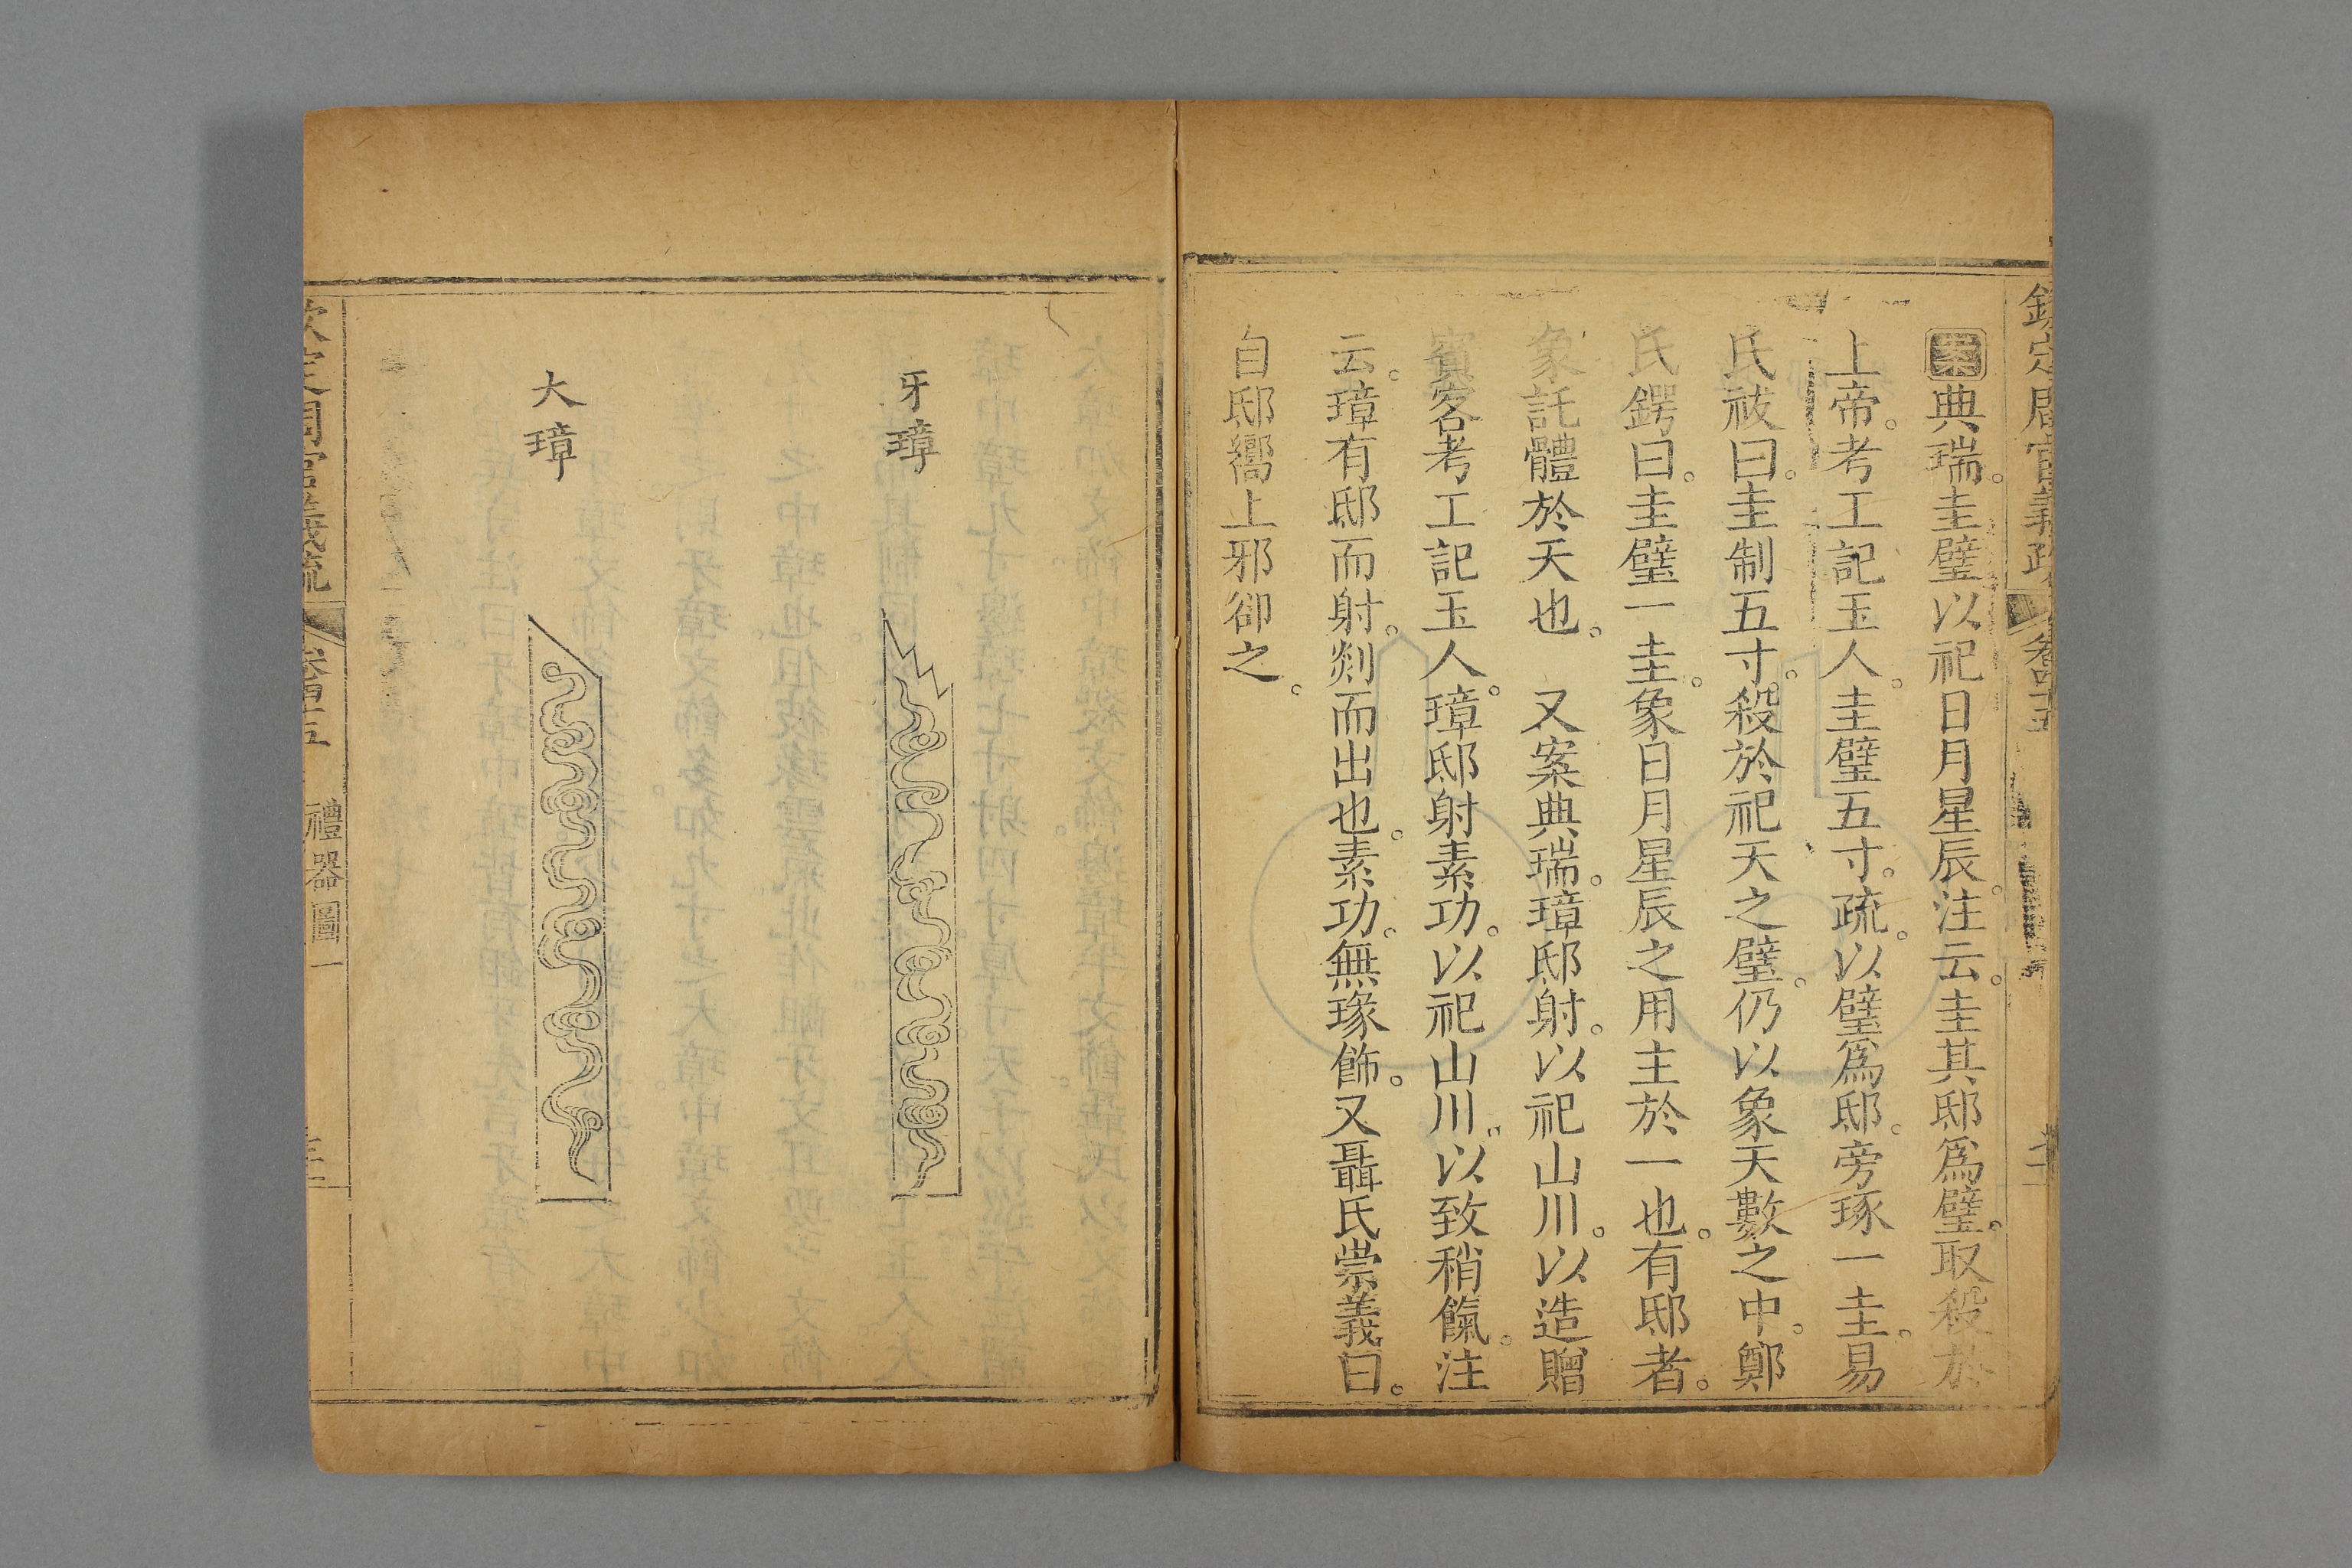 欽定周官義疏 卷四十五
案典瑞。圭璧以祀日月星辰。注云。圭其邸爲璧。取殺於
上帝。考工記玉人。圭璧五寸。疏。以璧爲邸。旁琢一圭。易
氏祓曰。圭制五寸。殺於祀天之璧。仍以象天數之中。鄭
氏鍔曰。圭璧一圭。象日月星辰之用主於一也。有邸者。
象託體於天也。 又案典瑞。璋邸射。以祀山川。以造贈
賓客考工記玉人。璋邸射素功。以祀山川。以致稍餼。注
云。璋有邸而射。剡而出也。素功。無瑑飾。又聶氏崇義曰。
自邸嚮上邪卻之。
牙璋
大璋
欽定周官義疏 卷四十五 禮器圖一